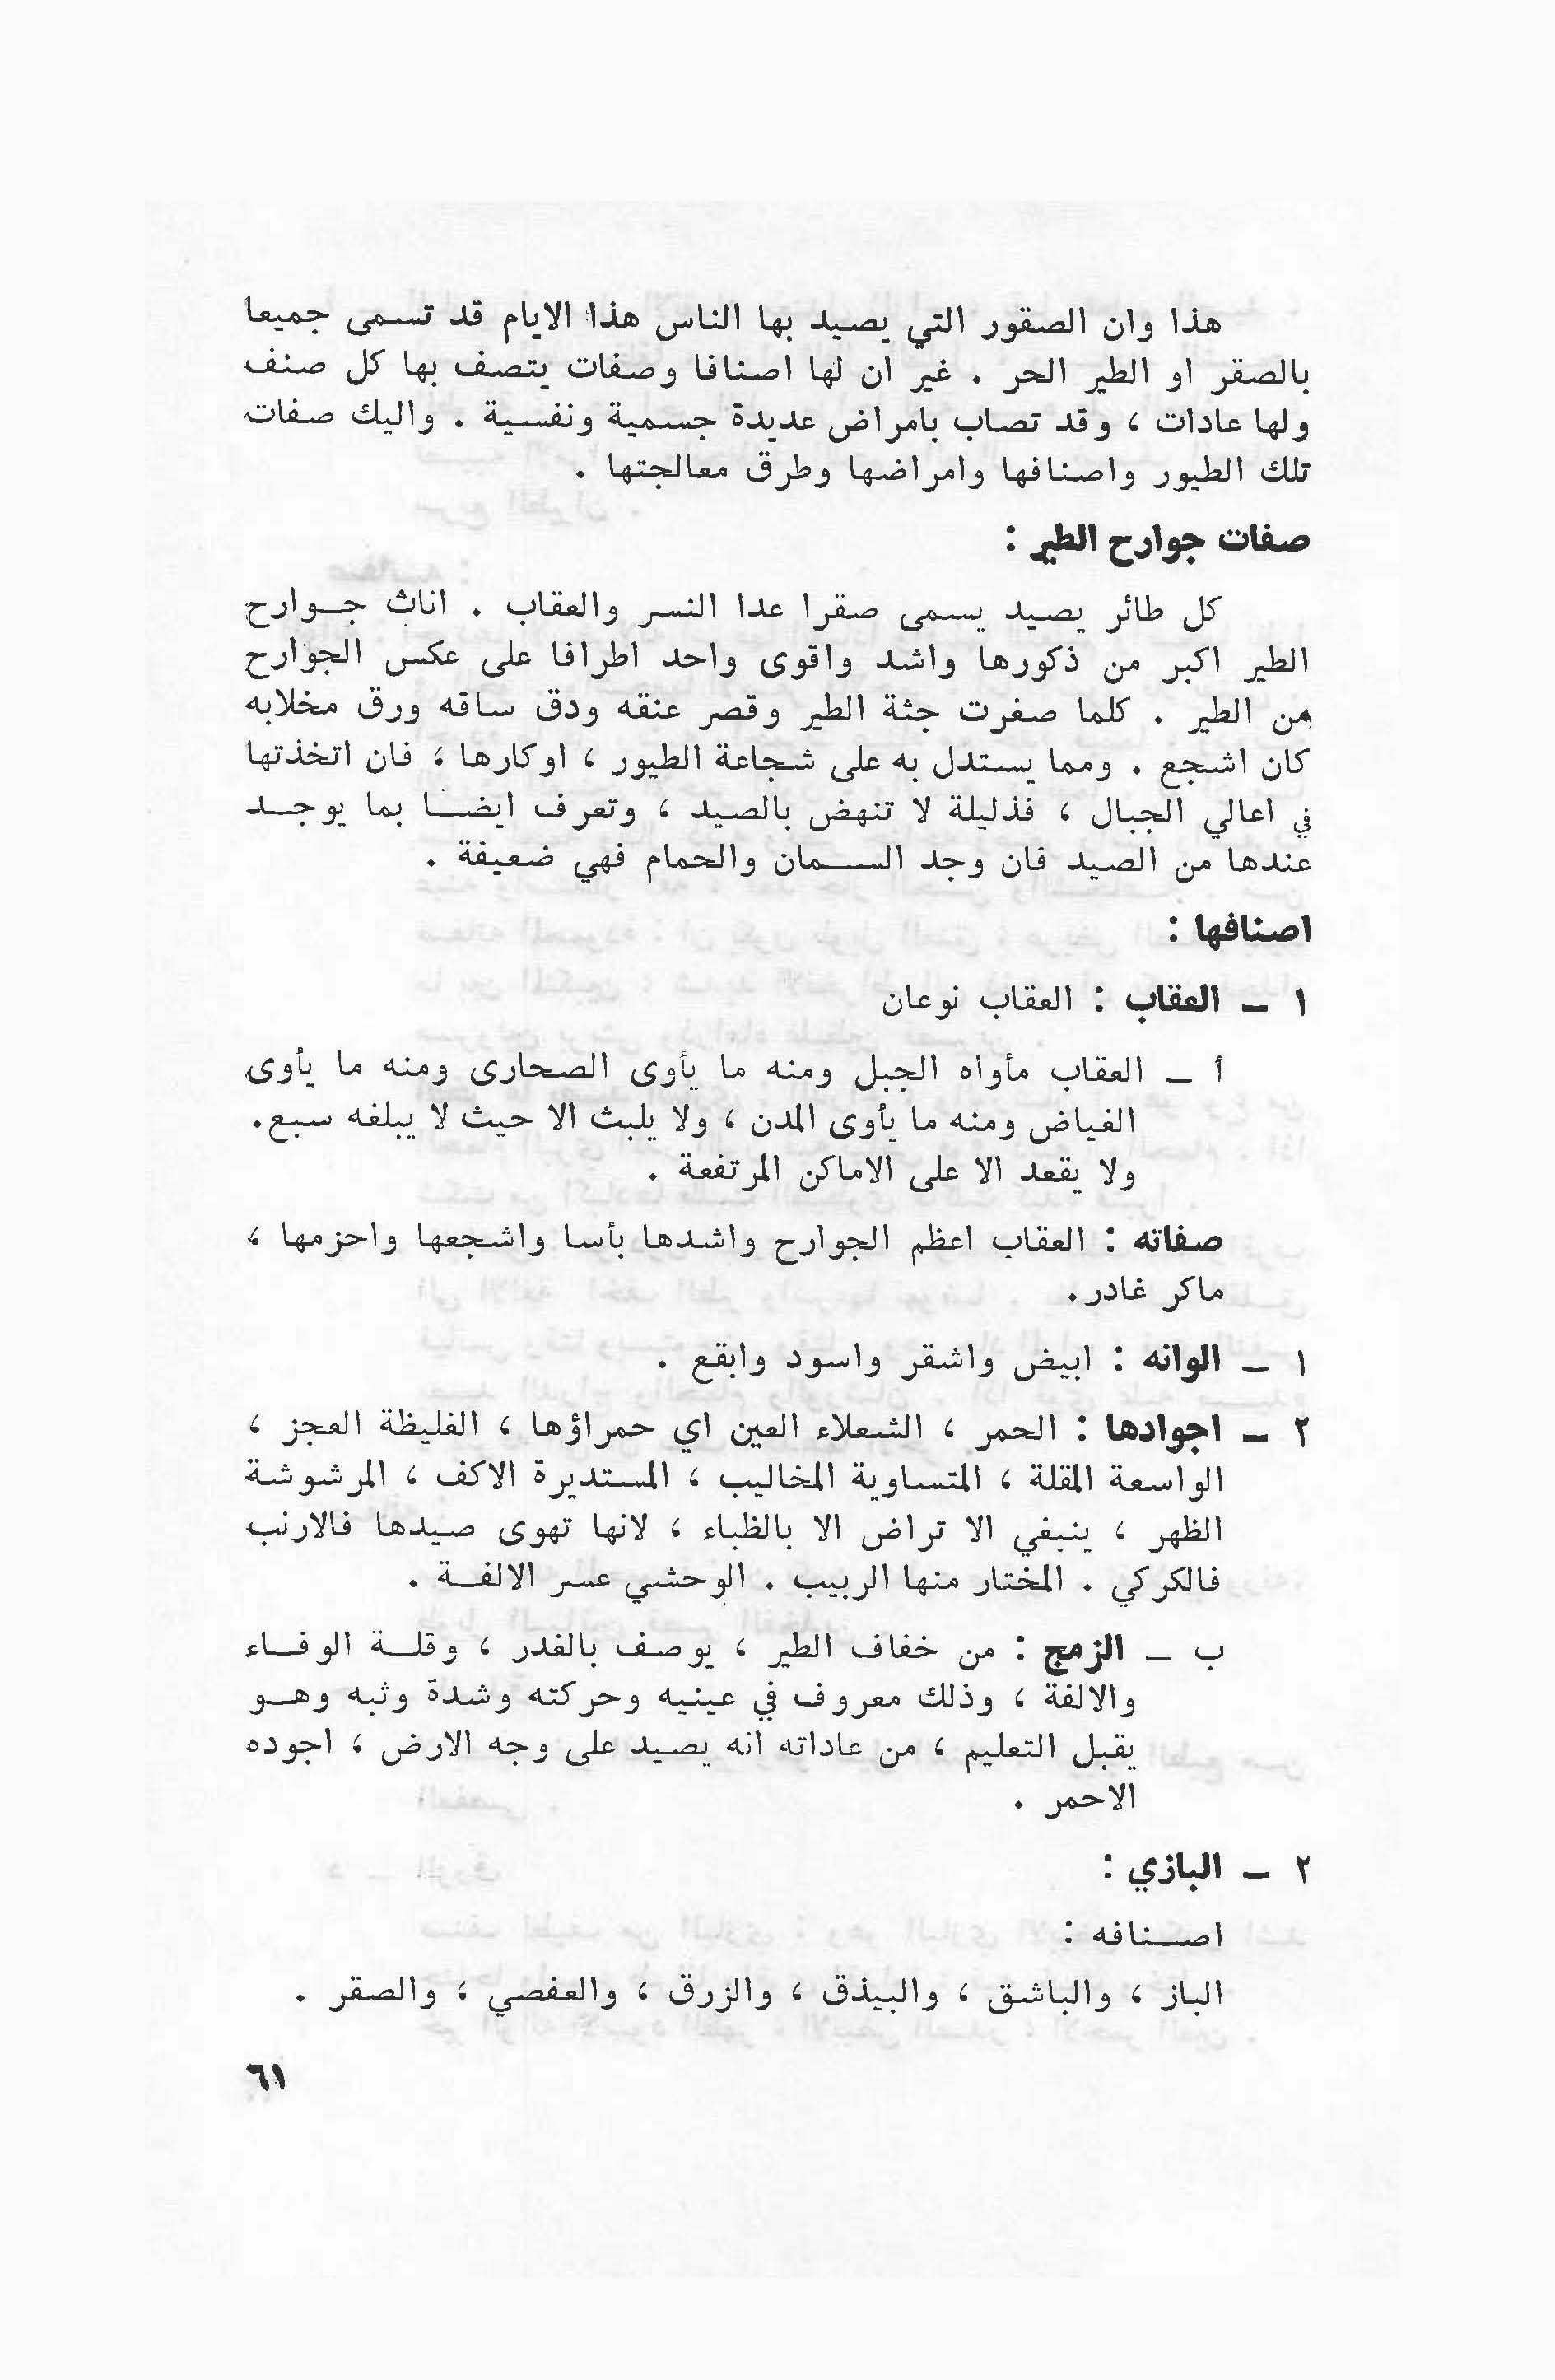 هذا وان الصقور التي يصيد بها الناس هذا الايام قد تسمى جميعا
بالصقر او الطير الحر . غير ان لها اصنافا وصفات يتصف بها كل صنف
ولها عادات ، وقد تصاب بامراض عديدة جسمية ونفسية . واليك صفات
تلك الطيور واصنافها وامراضها وطرق معالجتها .
صفات جوارح الطير :
كل طائر يصيد يسمى صقرا عدا النسر والعقاب . اناث جوارح
الطير اكبر من ذكورها واشد واقوى واحد اطرافا على عكس الجوارح
من الطير . كلما صغرت جثة الطير وقصر عنقه ودق ساقه ورق مخلابه
كان اشجع . ومما يستدل به على شجاعة الطيور ، اوكارها ، فان اتخذتها
في اعالي الجبال ، فذليلة لا تنهض بالصيد ، وتعرف ايضا بما يوجد
عندها من الصيد فان وجد السمان والحمام فهي ضعيفة .
اصنافها :
١ – العقاب : العقاب نوعان
أ – العقاب مأواه الجبل ومنه ما يأوى الصحارى ومنه ما يأوى
الغياض ومنه ما يأوى المدن ، ولا يلبث الا حيث لا يبلغه سبع.
ولا يقعد الا على الاماكن المرتفعة .
صفاته : العقاب اعظم الجوارح واشدها بأسا واشجعها واحزمها ،
ماكر غادر.
١ – الوانه : ابيض واشقر واسود وابقع .
٢ – اجوادها : الحمر ، الشعلاء العين اي حمراؤها ، الغليظة العجز ،
الواسعة المقلة ، المتساوية المخاليب ، المستديرة الاكف ، المرشوشة
الظهر ، ينبغي الا تراض الا بالظباء ، لانها تهوى صيدها فالارنب
فالكركي . المختار منها الربيب . الوحشي عسر الالفة .
ب – الزمج : من خفاف الطير ، يوصف بالغدر ، وقلة الوفاء
والالفة ، وذلك معروف في عينيه وحركته وشدة وثبه وهو
يقبل التعليم ، من عاداته انه يصيد على وجه الارض ، اجوده
الاحمر .
٢ – البازي :
اصنافه :
الباز ، والباشق ، والبيذق ، والزرق ، والعفصي ، والصقر .
٦١